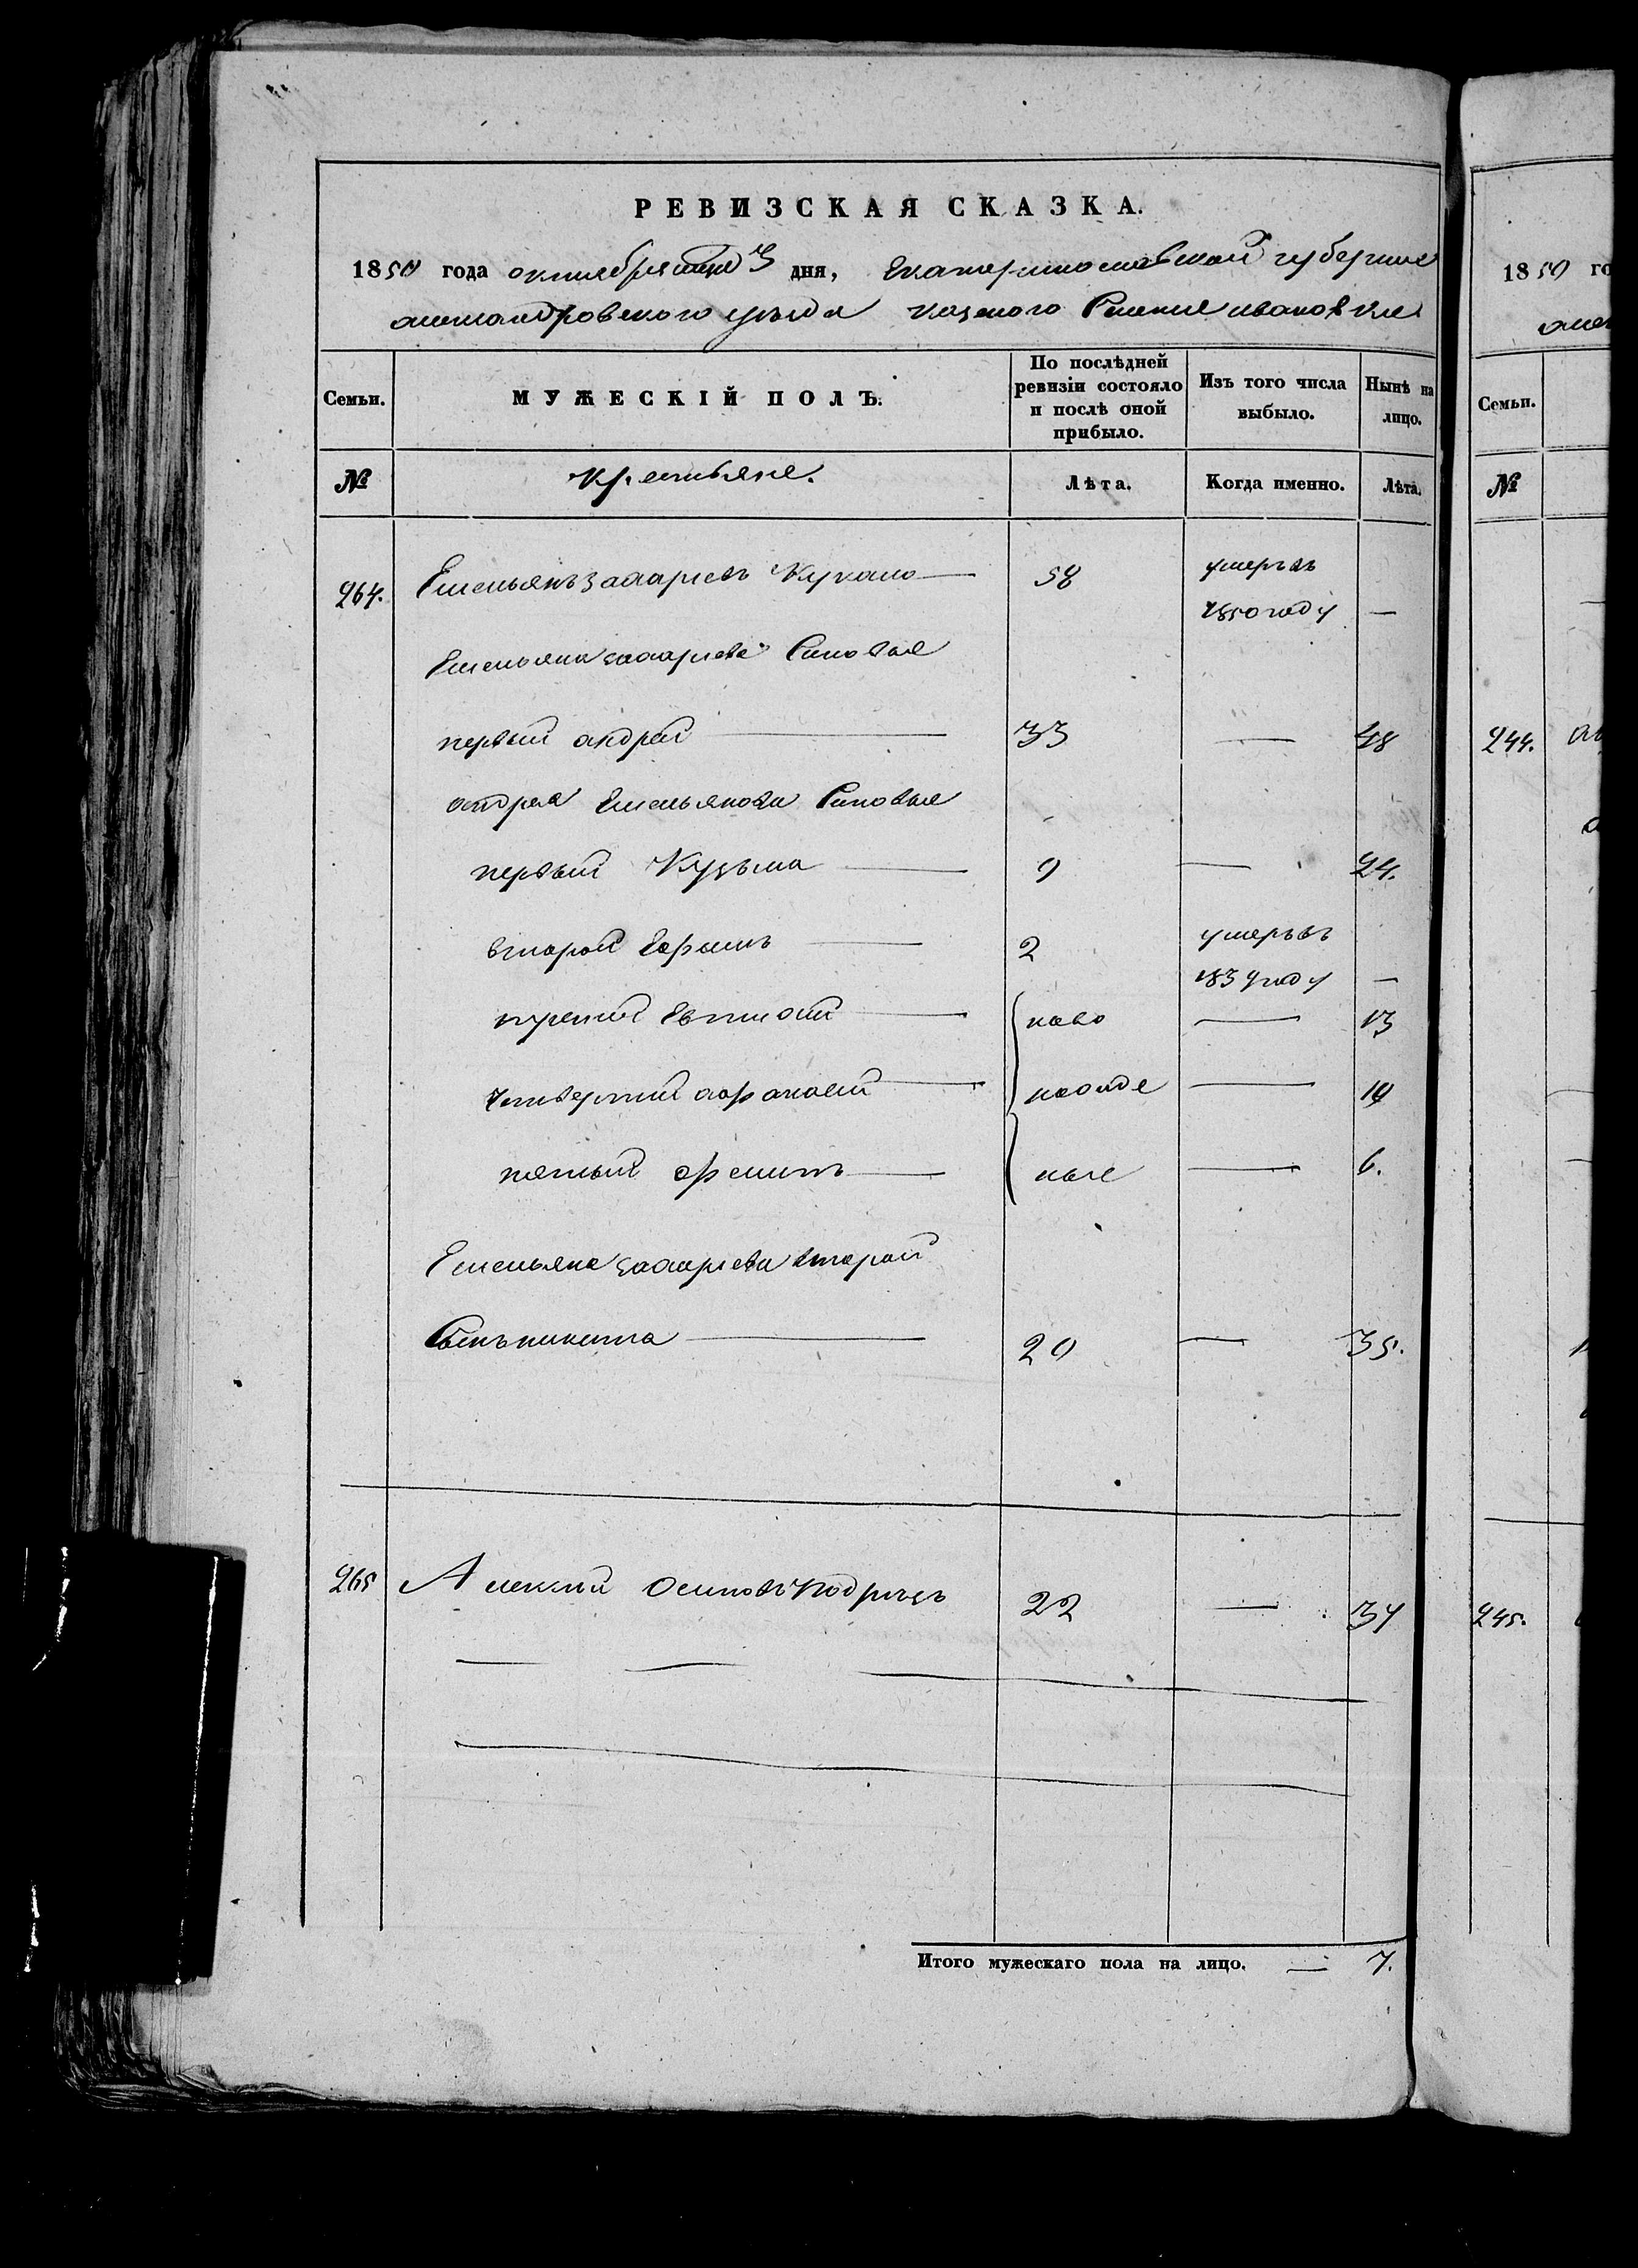 РЕВИЗСКАЯ СКАЗКА.
1850 года октября 3 дня, Екатеринославской губернии
александровского уезда казеного Селения ивановки
Семьи.
МУЖЕСКІЙ ПОЛЪ.
По послѣдней ревизіи состояло и послѣ оной прибыло.
Изъ того числа выбыло.
Нынѣ на лицо.
№
крестьяне.
Лѣта.
Когда именно.
Лѣта.
264. Емельянъ захарьевъ 58 умеръ въ
1850 году —
Емельяна захарьева Сыновья
первый андрей 33 — 48
андрея Емельянова Сыновья
первый Кузьма 9 — 24.
второй Ефимъ 2 умеръ въ
1839 году —
третий ново — 13
четвертый афанасий рожде — 10
пятый ные — 6.
Емельяна захарьева второй
Сынъ никита 20 — 35.
265 Алексей осиповъ 22 — 37
Итого мужескаго пола на лицо. — 7.
1850 го
Семьи.
№
244.
245.